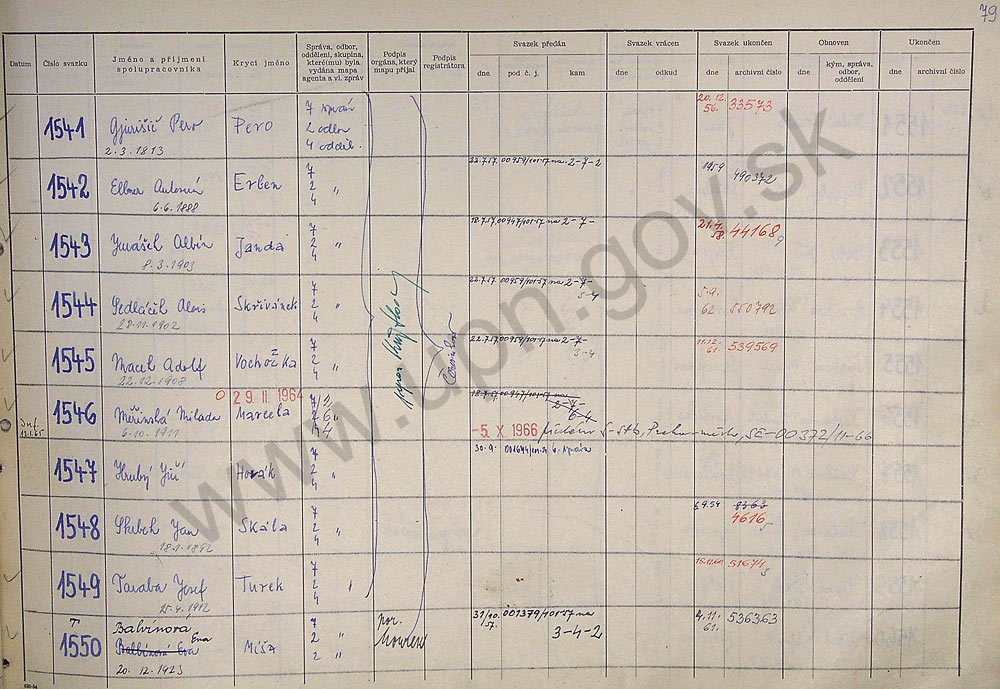 79
Datum
Číslo svazku
Jméno a příjmení spolupracovníka
Krycí jméno
Správa, odbor, oddělení, skupina, které(mu) byla vydána mapa agenta a vl. zpráv
Podpis orgána, který mapu přijal
Podpis registrátora
Svazek předán
dne
pod č. j.
kam
Svazek vrácen
dne
odkud
Svazek ukončen
dne
archivní číslo
Obnoven
dne
kým, správa, odbor, oddělení
Ukončen
dne
archivní číslo
1541 Pero Pero 7 2 odbor 4 odděl. 20.12. 56. 33573
2.3.1813
1542 Erben 7 2 4 " 22.7.57. 00959/101-57 na 2-7-2 1959 490372
6.6.1888
1543 Albín Janda 7 2 4 " 18.7.57. 00947/101-57 na 2-7- 44168
8.3.1903
1544 Sedláček Alois Skřivánek 7 2 4 " 22.7.57 00959/101-57 na 2-7- 3-4 5.9. 62 550792
28.11.1902
1545 Macek Adolf Vochožka 7 2 4 " 22.7.57 00959/101-57 na 2-7- 3-4 11.12. 61. 539569
22.12.1908
29.II.1964
1546 Měřínská Milada Marcela 18.7.57. 00947/101-57 na 2-7- 6-4
6.10.1911
-5. X. 1966 S-StB, Praha-město, SČ-00372/11-66
1547 Hrubý Jiří Horák 7 2 4 " 30.9. 6. správa
1548 Jan Skála 7 2 4 " 8363 4616
18.1.1892
1549 Taraba Josef Turek 7 2 4 15.11.60 51674
15.4.1912
1550 Balvínová Eva Míša 7 2 2 " por. 31/10. 57. 001379/101-57 na 3-4-2 4.11. 61. 536363
Balbínová Eva
20.12.1923
www.upn.gov.sk